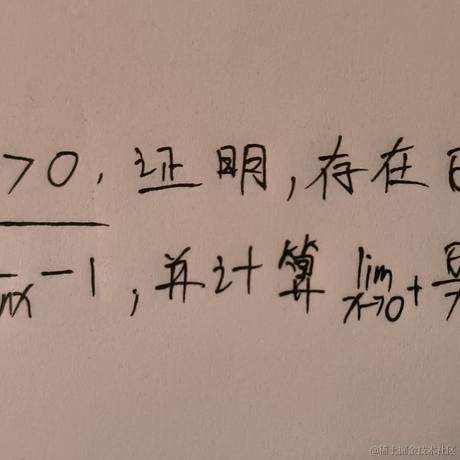 >0,证明,存在
-1,并计算 lim x→0+
@稀土掘金技术社区